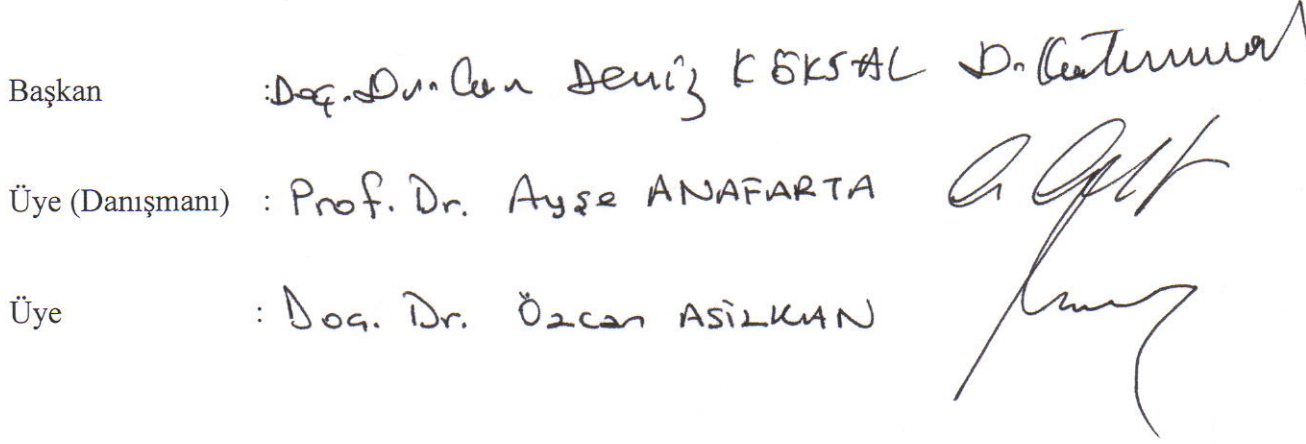 Başkan :Doç. Dr. Can Deniz KÖKSAL
Üye (Danışmanı) : Prof. Dr. Ayşe ANAFARTA
Üye : Doç. Dr. Özcan ASİLKAN